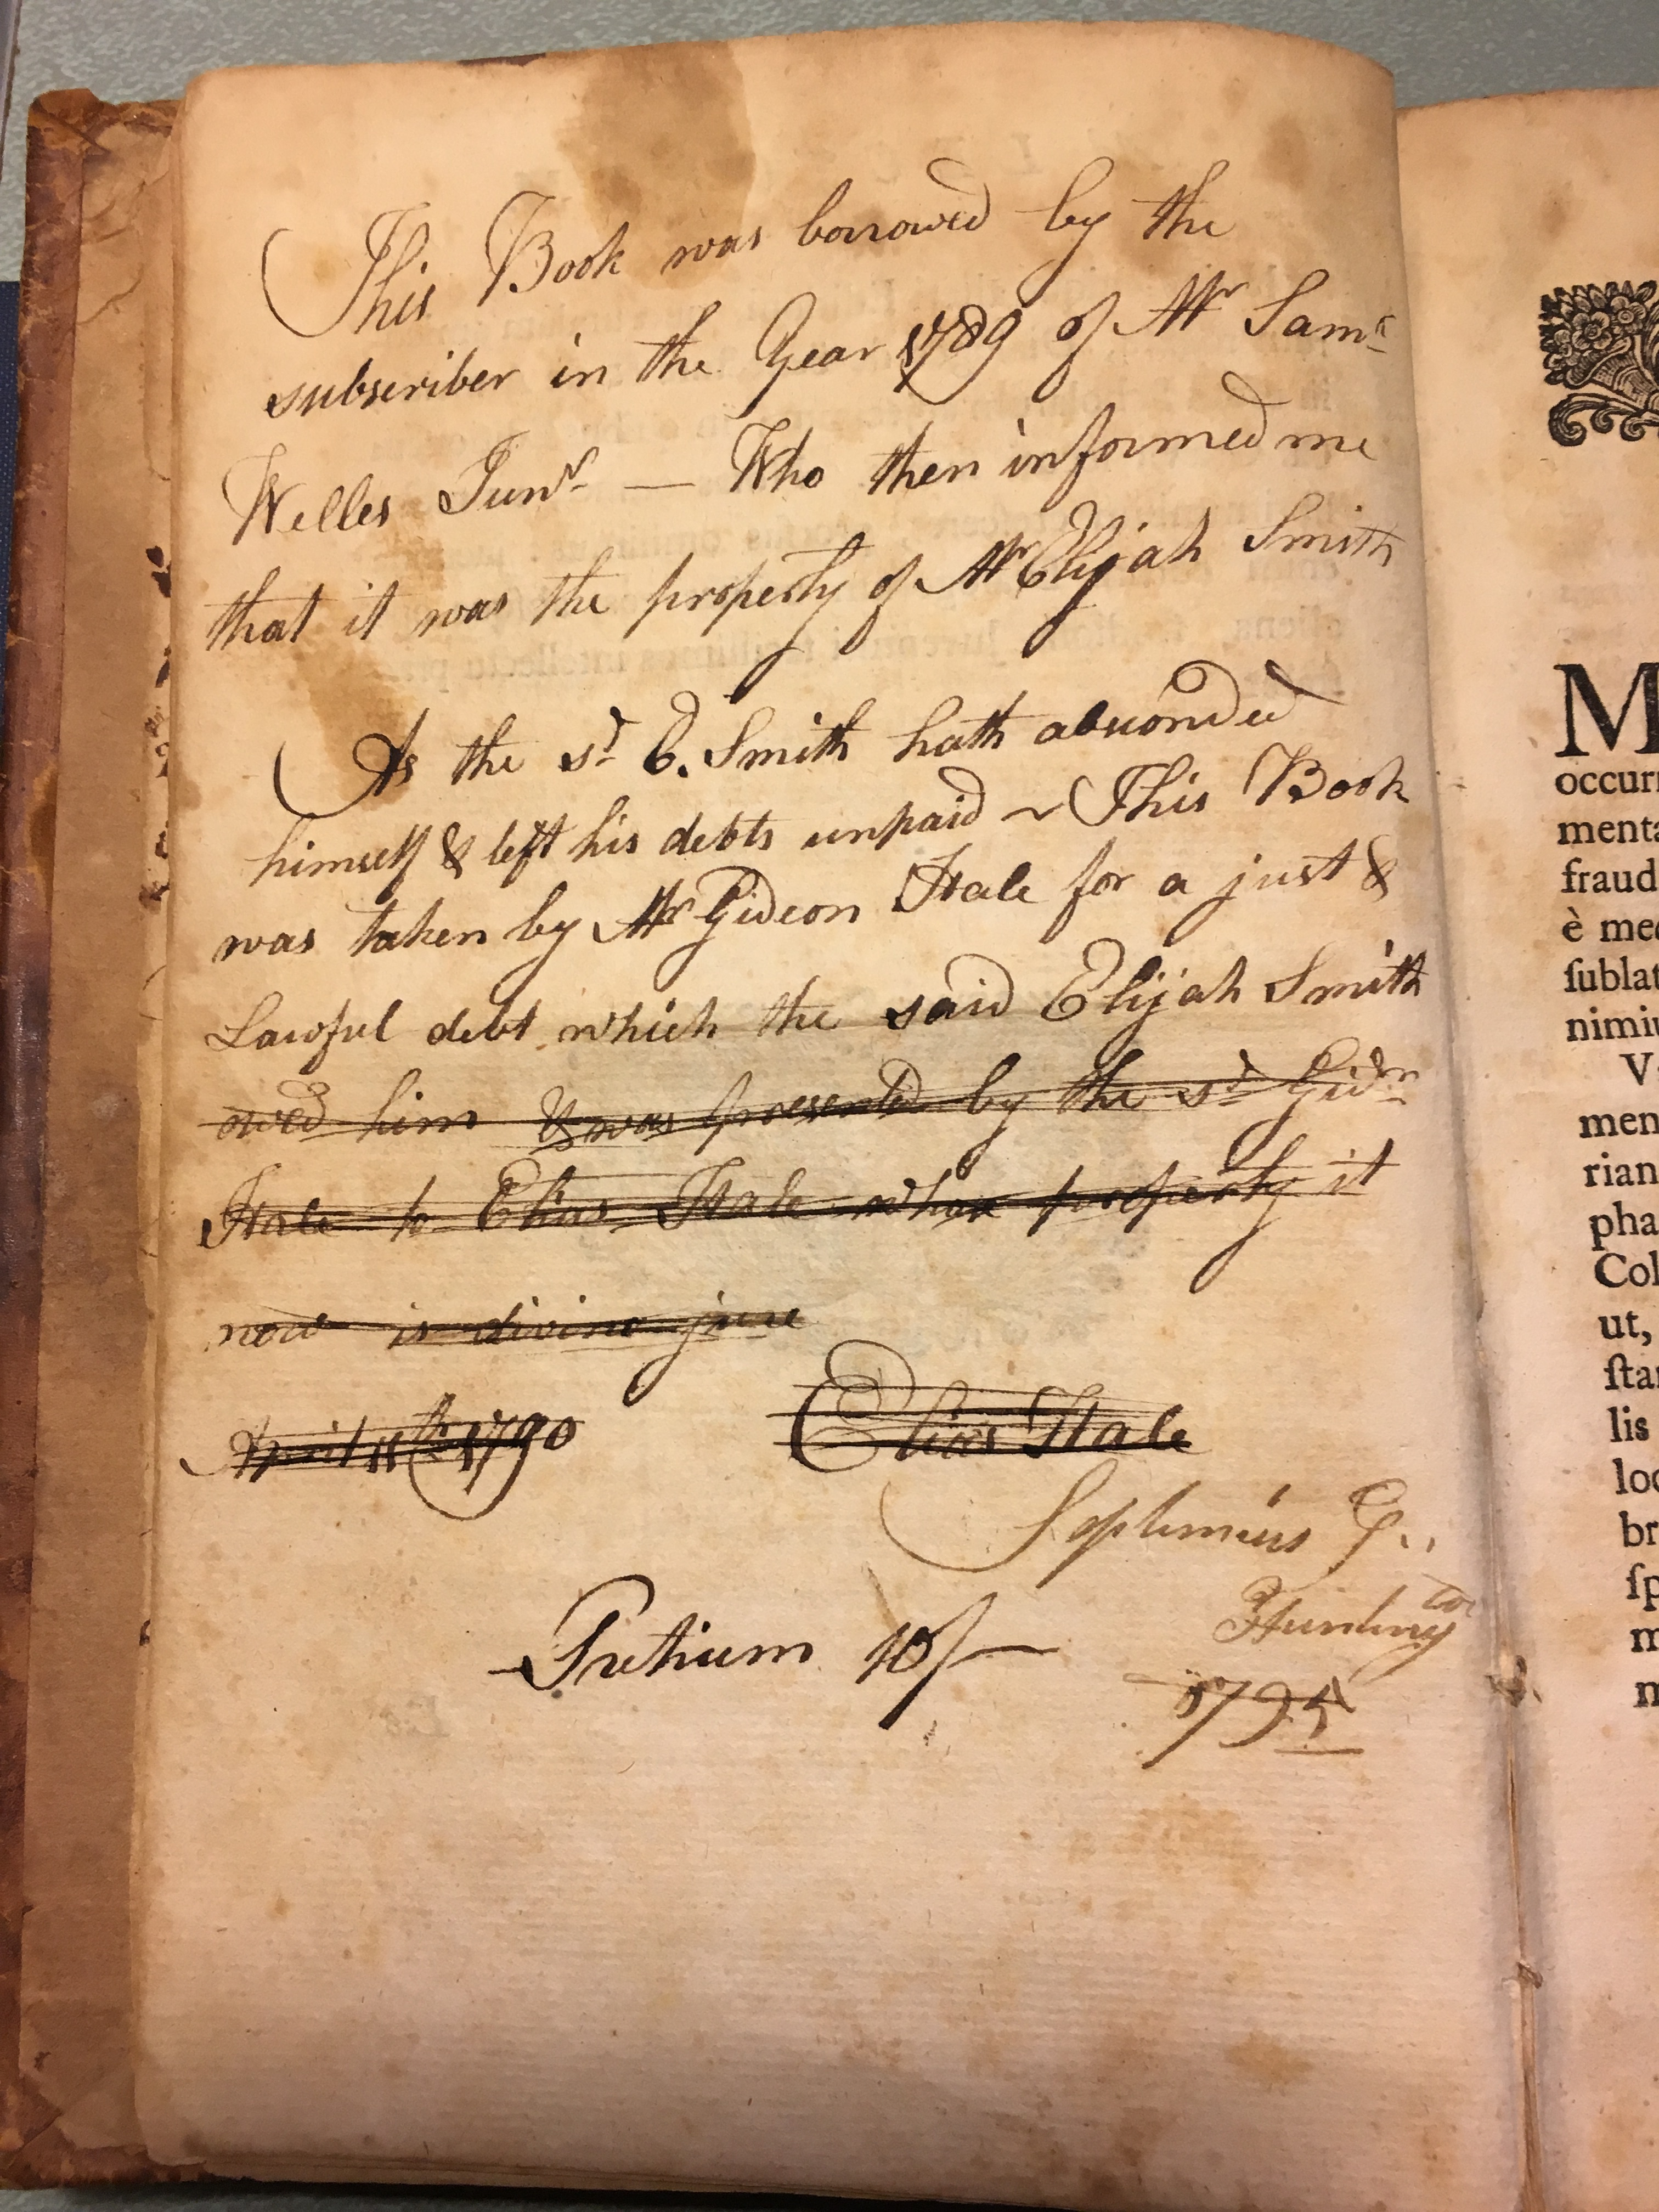 This Book was borrowed by the
subscriber in the Year 1789 of Mr Saml
Welles Junr — Who then informed me
that it was the property of Mr Elijah Smith
As the sd E. Smith hath absconded
himself & left his debts unpaid ~ This Book
was taken by Mr Gideon Hale for a just &
Lawful debt which the said Elijah Smith
owed him & was presented by the sd Gidn
Hale to Elias Hale whose property it
now is divino jure
April 11th 1790 Elias Hale
Septimius G..
Huntington
Pretium 10/—
1795
M
occur
menta
fraud
è med
ſublat
nimiu
V
men
rian
pha
Col
ut,
ſta
lis
loc
br
ſp
m